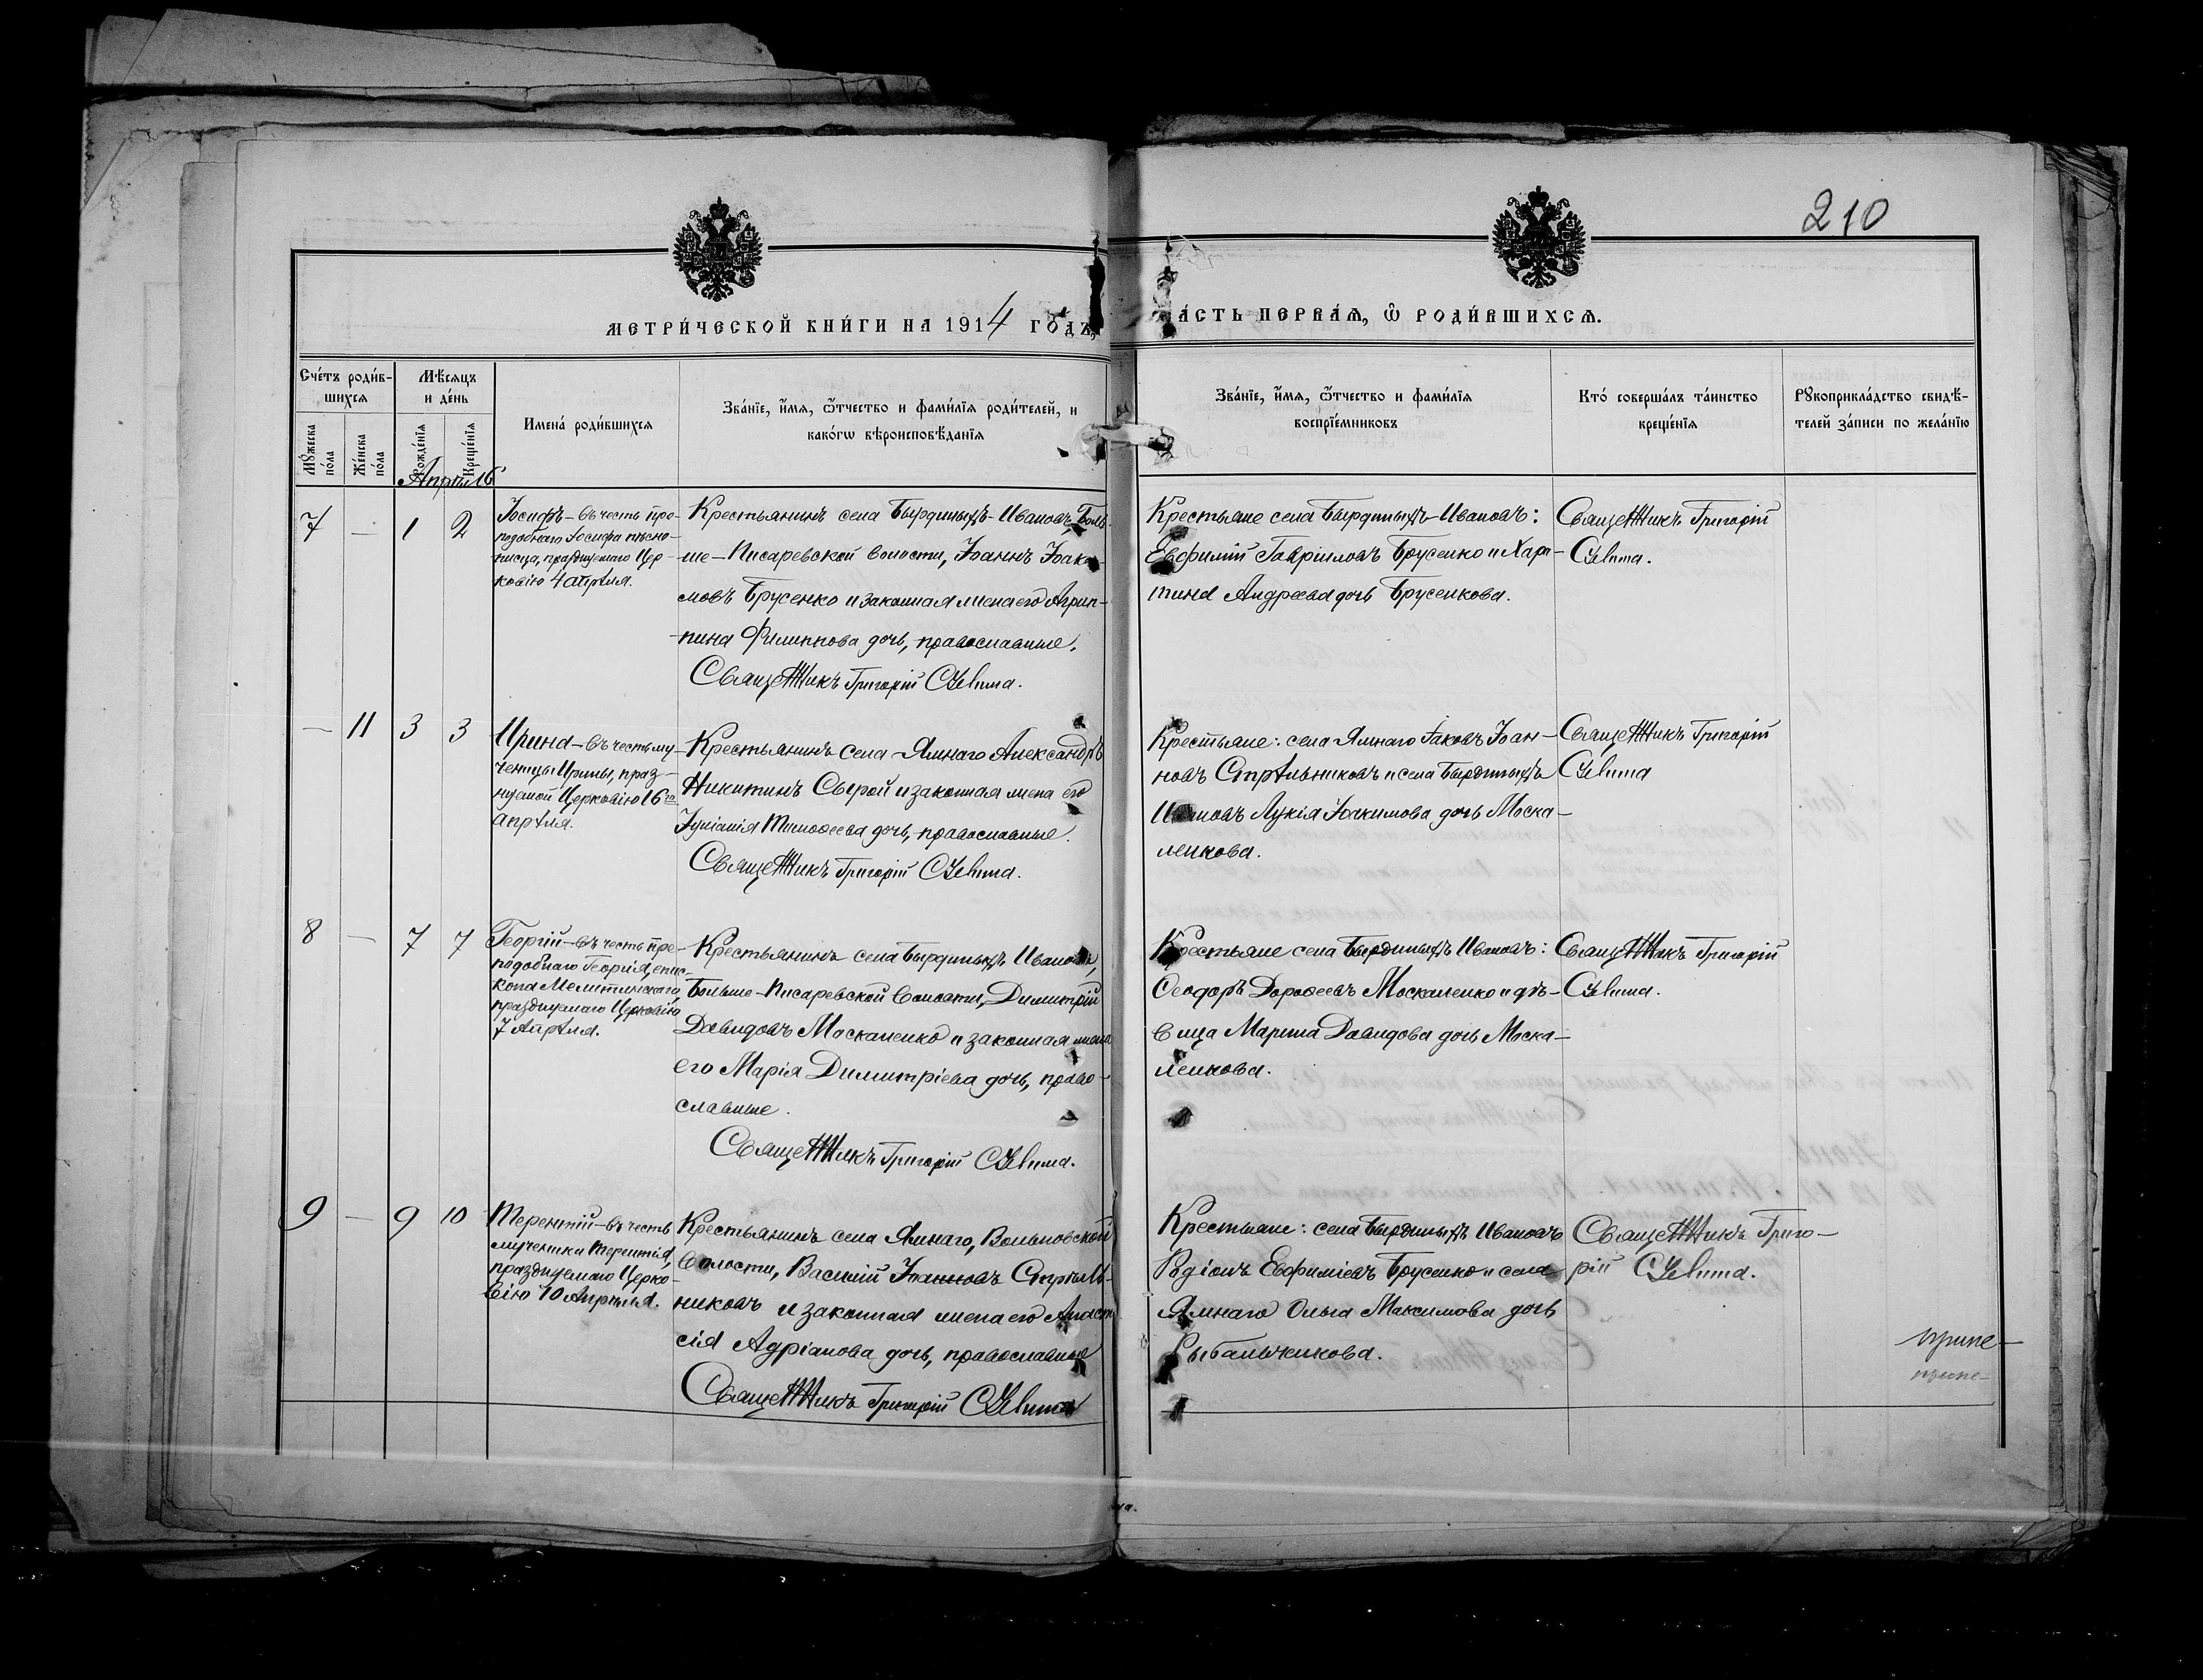 210
МЕТРИ́ЧЕСКОЙ КНИ́ГИ НА 1914 ГО́ДЪ,
А́СТЬ ПЕ́РВАѦ, Ѡ҆ РОДИ́ВШИХСѦ.
Сче́тъ роди́в-
шихсѧ
Мѣ́сѧцъ
и де́нь
Имена́ роди́вшихсѧ
Зва́нїе, и҆́мѧ, ѻ҆́тчество и фами́лїѧ роди́телей, и
како́гѡ вѣроисповѣ́данїѧ
Мꙋ́жеска
по́ла
Же́нска
по́ла
Рожде́нїѧ
Креще́нїѧ
Зва́нїе, и҆́мѧ, ѻ҆́тчество и фами́лїѧ
воспрїе́мниковъ
Кто́ соверша́лъ та́инство
креще́нїѧ
Рꙋкоприкла́дство свидѣ́-
телей за́писи по жела́нїю
7 — 1 2
Іосифъ – въ честь пре-
подобнаго Іосифа пѣсно-
писца, празднуемаго Цер-
ковію 4 апрѣля.
Крестьянинъ села Бырдиныхъ-Ивановъ, Боль-
ше-Писаревской волости, Іоаннъ Іоаки-
мовъ Брусенко и законная жена его Агрип-
пина Филиппова дочь, православные.
Священникъ Григорій
Крестьяне села Бырдиныхъ-Ивановъ:
Евфимій Гавріиловъ Брусенко и Хари-
тина Андреева дочь Брусенкова.
Священникъ Григорій
— 11 3 3
Ирина – въ честь му-
ченицы Ирины, праз-
нуемой Церковію 16го
апрѣля.
Крестьянинъ села Ямнаго Александръ
Никитинъ Сырой и законная жена его
Іуліанія Тимоѳеева дочь, православные.
Священникъ Григорій
Крестьяне: села Ямнаго Іаковъ Іоан-
новъ Стрѣльниковъ и села Бырдиныхъ
Ивановъ Лукія Іоакимова дочь Моска-
ленкова.
Священникъ Григорій
8 — 7 7
Георгій – въ честь пре-
подобнаго Георгія, епис-
копа Мелитинскаго,
празднуемаго Церковію
7 Апрѣля.
Крестьянинъ села Бырдиныхъ Ивановъ,
Больше-Писаревской волости, Димитрій
Давидовъ Москаленко и законная жена
его Марія Димитріева дочь, право-
славные.
Священникъ Григорій
Крестьяне села Бырдиныхъ Ивановъ:
Ѳеодоръ Дороѳеевъ Москаленко и дѣ-
вица Марина Давидова дочь Моска-
ленкова.
Священникъ Григорій
9 — 9 10
Терентій – въ честь
мученика Терентія,
празднуемаго Церко-
вію 10 Апрѣля.
Крестьянинъ села Ямнаго, Вольновской
волости, Василій Іоанновъ Стрѣль-
никовъ и законная жена его Анаста
сія Адріанова дочь, православные
Священникъ Григорій
Крестьяне: села Бырдиныхъ Ивановъ
Родіонъ Евфиміевъ Брусенко и села
Ямнаго Ольга Максимова дочь
Рыбальченкова.
Священникъ Григо-
рій